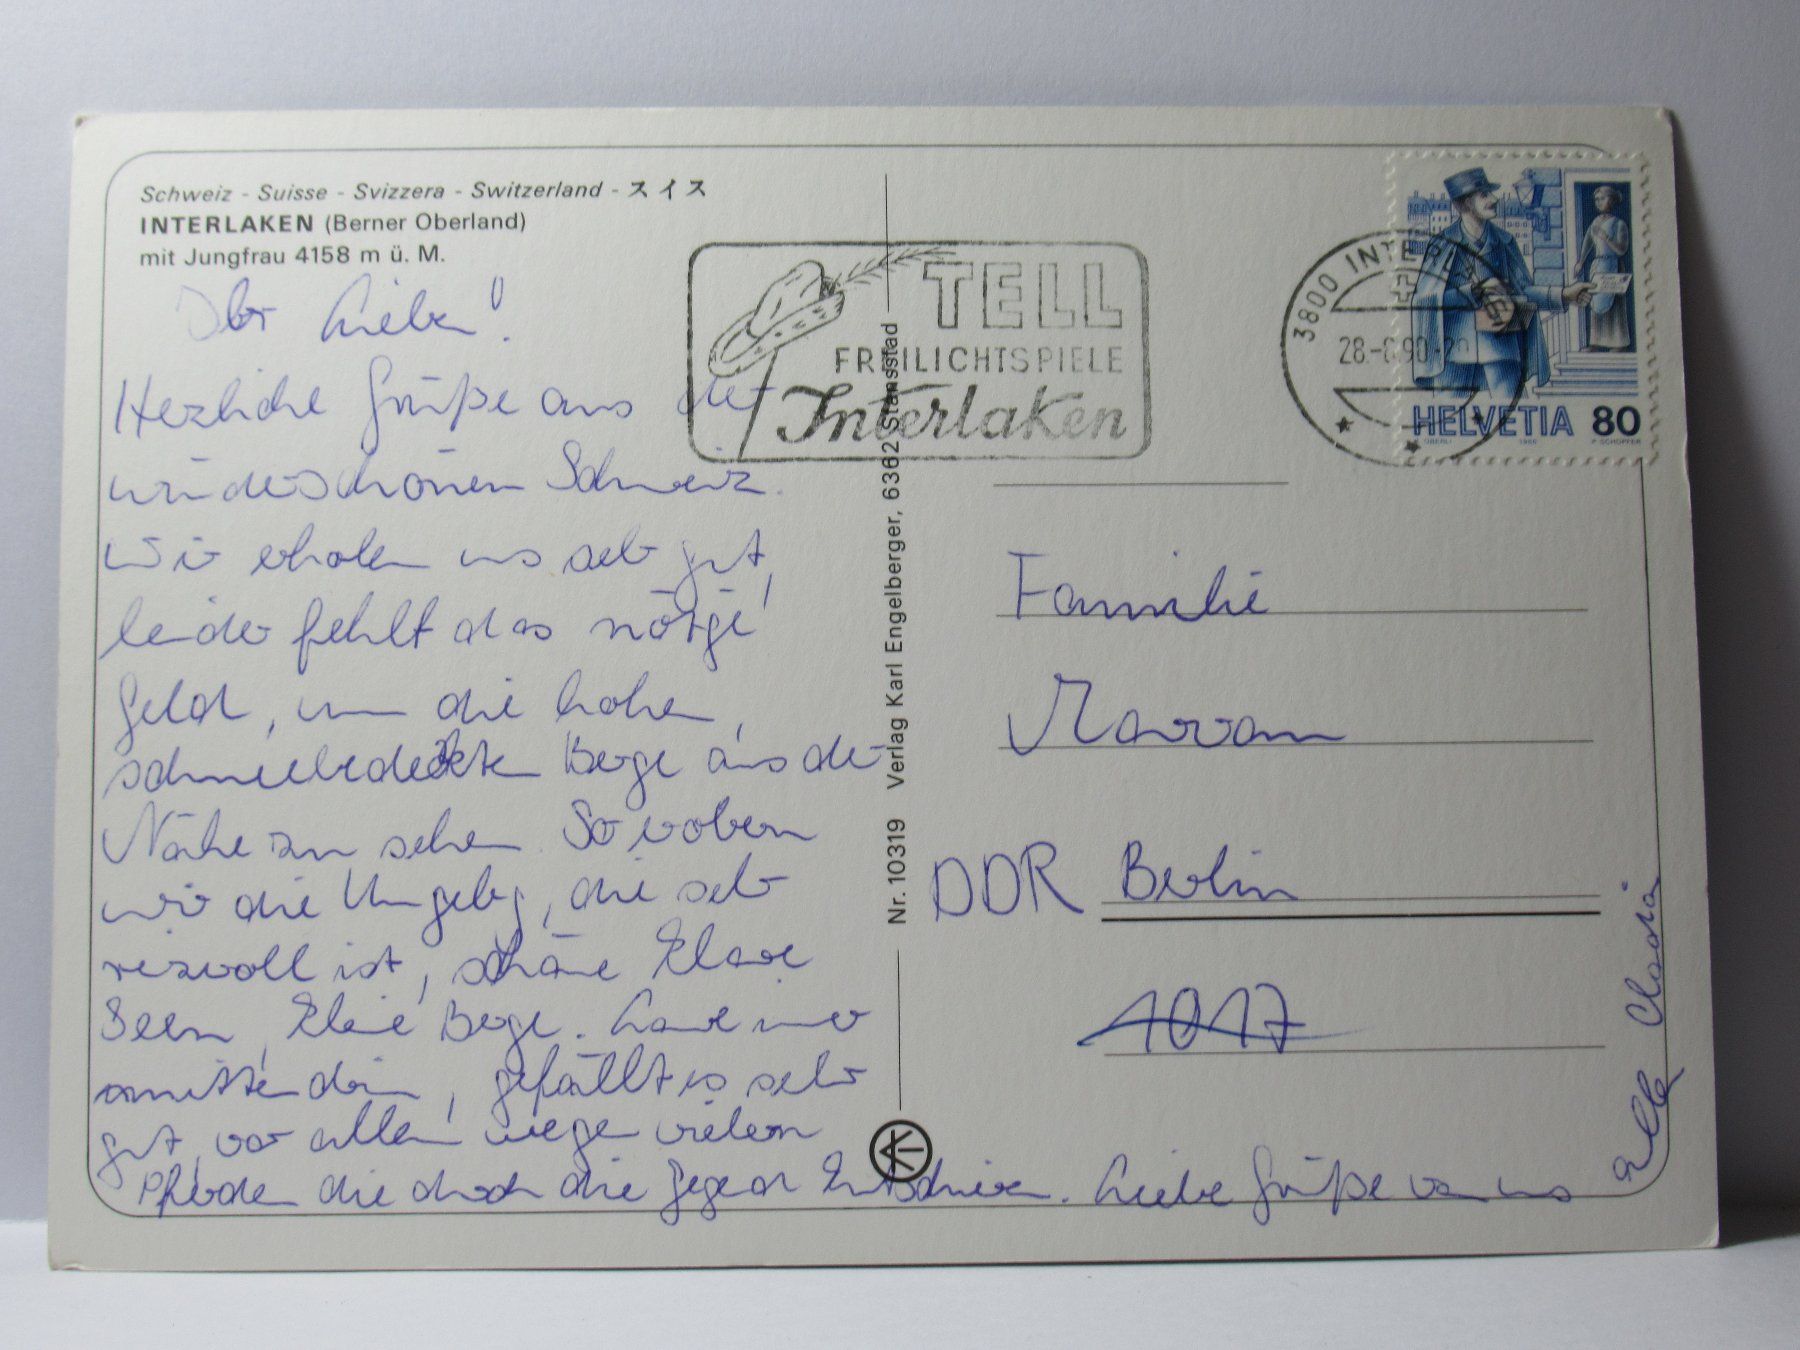 Schweiz - Suisse - Svizzera - Switzerland - スイス
INTERLAKEN (Berner Oberland)
mit Jungfrau 4158 m ü. M.
Ihr Lieben!
Herzliche Grüße aus der
wunderschönen Schweiz.
Wir erholen uns sehr gut,
leider fehlt das nötige
Geld, um die hohen,
schneebedeckten Berge aus der
Nähe zu sehen. So erobern
wir die Umgebg, die sehr
reizvoll ist, schöne klare
Seen, kleine Berge.
mittendrin, gefällt es sehr
gut, vor allem wegen vielen
Pferden die durch die Gegend kutschieren. Liebe Grüße von uns
allen Claudia
TELL
FREILICHTSPIELE
Interlaken
3800 INTERLAKEN
28.-
90-20
HELVETIA 80
OBERLI
P. SCHOPFER
Nr. 10319 Verlag Karl Engelberger, 6362 Stansstad
Familie
DDR Berlin
1017